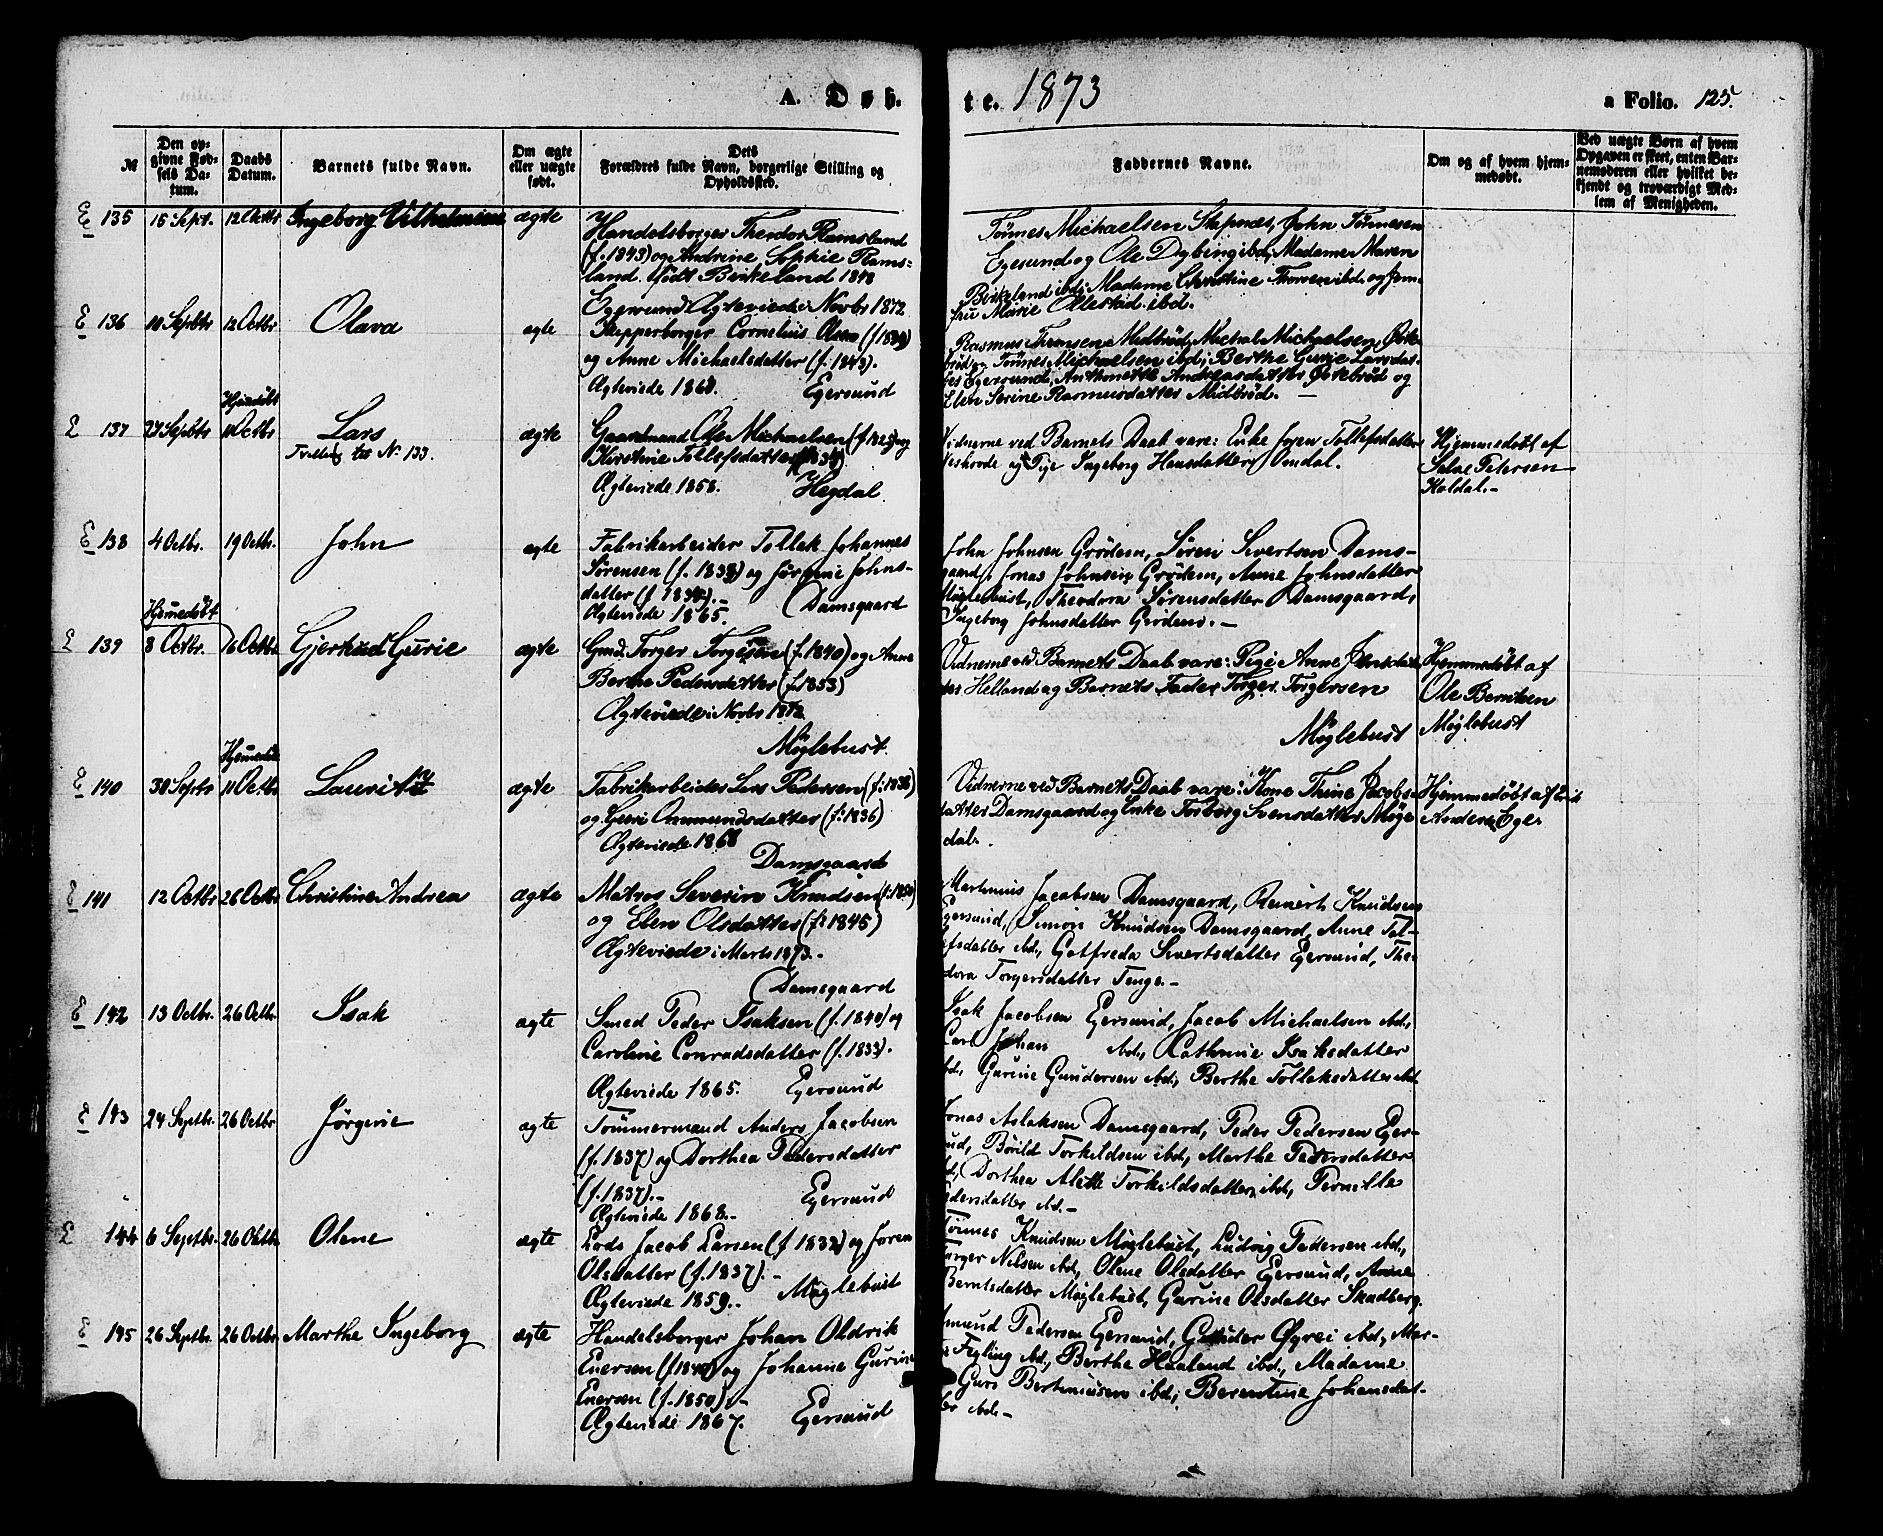 A. Døb.
te. 1873
a Folio. 125.
№
Den opgivne Fødsels Datum.
Daabs Datum.
Barnets fulde Navn.
Om ægte eller uægte født.
Dets Forældres fulde Navn, borgerlige Stilling og Opholdssted.
Faddernes Navne.
Om og af hvem hjemmedøbt.
Ved uægte Børn af hvem Opgaven er skeet, enten Barnemoderen eller hvilket bekjendt og troværdigt Medlem af Menigheden.
E 135 15 Sept. 12 Octbr Ingeborg Vilhelmine ægte
Handelsborger Theodor Ramsland
(f. 1843) og Andrine Sophie Rams-
land født Birkeland 1848
Egersund Ægteviede i Novbr 1872
Tønnes Michaelsen Stapnæs, John Tønnesen
Egesund og Ole Dybing ibd, Madame Maren
Birkeland ibd; Madame Christine Thorsen ibd. og Jom-
fru Marie Ollestad ibd.
E 136 10 Septbr 12 Octbr Olava ægte
Skipperborger Cornelius Olsen (f 1839)
og Anne Michaelsdatter (f. 1843).
Ægteviede 1868. Egersund
Rasmus Thomsen Midbrød, Michal Michaelsen, Øste-
brød, Tønnes Michaelsen ibd; Berthe Gurie Larsdat-
ter Egersund, Anthonette Andreasdatter Østebrød og
Elen Serine Rasmusdatter Midbrød. —
E 137 27 Septbr Hjemedøbt 11 Octbr Lars
Tvilling til No 133. ægte
Gaardmand Ole Michaelsen (f. 1823) og
Kirstine Tollefsdatter (f. 1834)
Ægteviede 1858. Hegdal
Vidnerne ved Barnets Daab vare: Enke Joren Tollefsdatter
Leskorde og Pige Ingeborg Hansdatter Omdal.
Hjemmedøbt af
Salve Petersen
Koldal. -
E 138 4 Octbr. 19 Octbr. John ægte
Fabrikarbeider Tollek Johannes
Sørensen (f. 1838) og Jørgine Johns-
datter (f 1834). -
Ægteviede 1865. Damsgaard
John Johnsen Grødem, Søren Sivertsen Dams-
gaard, Jonas Johnsen Grødem, Anne Johnsdatter
Møglebust, Theodora Sørensdatter Damsgaard,
Ingeborg Johnsdatter Grødem. —
Hjemedøbt
E 139 8 Octbr. 16 Octbr Gjertrud Gurie ægte
Gmd. Torger Torgersen (f. 1840) og Anne
Berthe Pedersdatter (f. 1853)
Ægteviede i Novbr 1872
Møglebust.
Vidnerne ved Barnets Daab vare: Pige Anne Jensdat-
ter Helland og Barnets Fader Torger Torgersen
Møglebust
Hjemmedøbt af
Ole Berntsen
Møglebust
E 140 30 Septbr Hjemedøbt 11 Octbr Lauritz ægte
Fabrikarbeider Lars Pedersen (f. 1838)
og Guri Ommundsdatter (f: 1836)
Ægteviede 1868
Damsgaard
Vidnerne ved Barnets Daab vare: Kone Thine Jacobs-
datter Damsgaard og Enke Torborg Svensdatter Møge-
dal.
Hjemmedøbt af
Anders Ege
E 141 12 Octbr 26 Octbr Christine Andrea ægte
Matros Severin Knudsen (f: 1850)
og Elen Olsdatter (f: 1845)
Ægteviede i Marts 1873. -
Damsgaard
Martinius Jacobsen Damsgaard, Reinert Knudsen
Egersund, Simon Knudsen Damsgaard, Anne Tol-
lefsdatter ibd., Gotfreda Sivertsdatter Egersund, Theo-
dora Torgersdatter Tenge. -
E 142 13 Octbr. 26 Octbr. Isak ægte
Smed Peder Isaksen (f. 1840) og
Caroline Conradsdatter (f. 1833).
Ægteviede 1865. Egersund
Isak Jacobsen Egersund, Jacob Michaelsen ibd,
Carl Johan ibd., Cathrine Isaksdatter
ibd, Gurine Gundersen ibd, Berthe Tollaksdatter ibd
E 143 24 Septbr. 26 Octbr Jørgine ægte
Tømmermand Anders Jacobsen
(f. 1837) og Dorthea Pedersdatter
(f. 1837). - Egersund
Ægteviede 1868. -
Jonas Aslaksen Damsgaard, Peder Pedersen Eger-
sund, Børild Torkildsen ibd, Marthe Pedersdatter
ibd, Dorthea Alette Torkildsdatter ibd, Pernille
Pedersdatter ibd. -
E 144 6 Septbr. 26 Octbr Olene ægte
Lods Jacob Larsen (f 1832) og Joren
Olsdatter (f. 1837). -
Ægteviede 1859. - Møglebust
Tønnes Knudsen Møglebust, Ludvig Pedersen ibd.,
Torger Nilsen ibd, Olene Olsdatter Egersund, Anne
Berntsdatter Møglebust, Gurine Olsdatter Skadberg.
E 145 26 Septbr. 26 Octbr Marthe Ingeborg ægte
Handelsborger Johan Oldrik
Enersen (f 1840) og Johanne Gurine
Enersen (f. 1850). -
Ægteviede 1867. Egersund
Omund Pedersen Egersund, Gunder Øyrei ibd, Mar-
Fegling ibd, Berthe Haaland ibd., Madame
Guro Bertiniusen ibd; Berentine Johansdat-
ter ibd. -